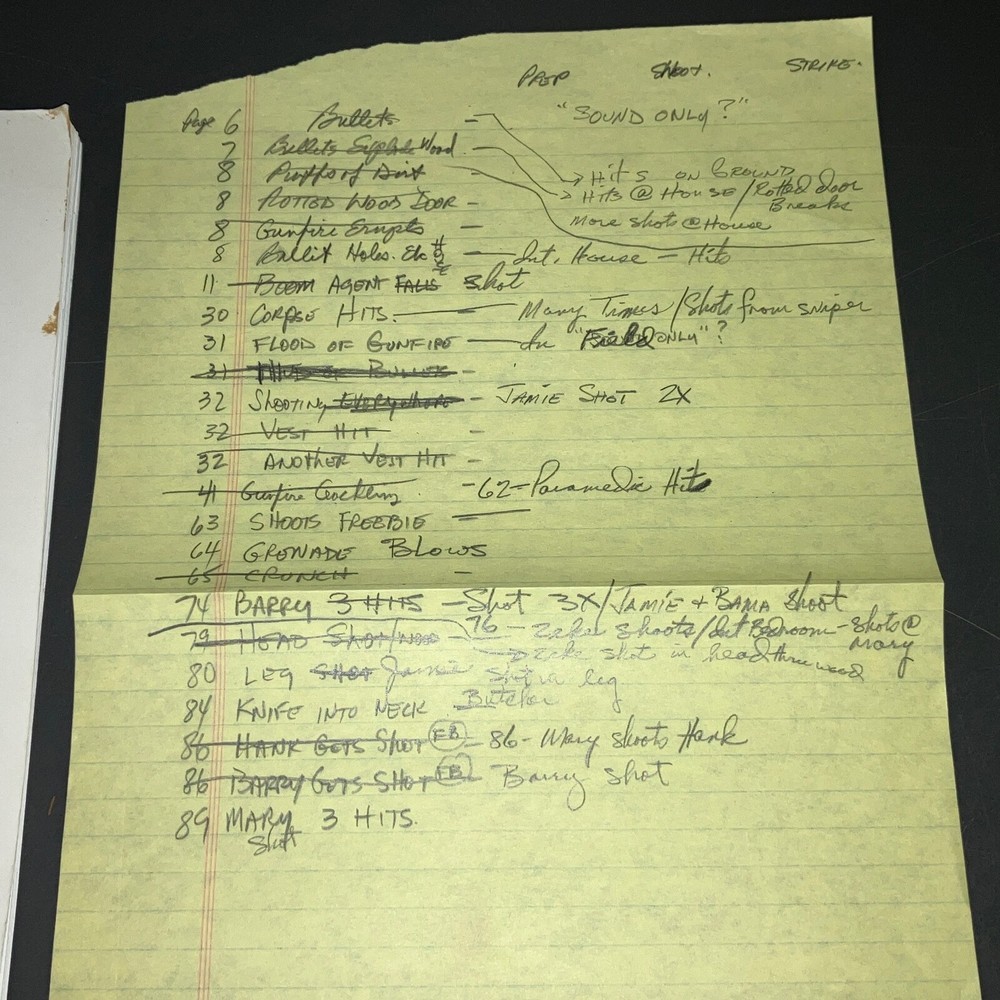 PREP SHOOT. STRIKE.
Page 6 Bullets - "SOUND ONLY?"
7 Bullets Explode Wood -
→ Hits ON GROUND
8 Puffs of Dirt -
→ HITS @ HOUSE / Rotted door Breaks
8 ROTTED WOOD DOOR -
More shots @ House
8 Gunfire Erupts -
8 Bullit Holes. Etc - Int. House - Hits
11 BOOM AGENT FALLS Shot
30 CORPSE HITS. - Many Times / Shots from sniper
31 FLOOD OF GUNFIRE - In "Field ONLY"?
31 BULLETS -
32 Shooting Everywhere - JAMIE SHOT 2X
32 VEST HIT -
32 ANOTHER VEST HIT -
41 Gunfire Crackling. - 62- Paramedic Hit
63 SHOOTS FREEBIE -
64 GRENADE BLOWS
65 CRUNCH -
74 BARRY 3 HITS - Shot 3X / JAMIE + BAMA Shoot
79 HEAD SHOT / WOOD 76 - Zeke shoots / Int Bedroom - Shots @ Mary
→ Zeke shot in head thru wood
80 LEG SHOT Jamie Shot in leg
84 KNIFE INTO NECK Butcher
86 HANK GETS SHOT FB - 86- Mary shoots Hank
86 BARRY GETS SHOT FB - Barry shot
89 MARY 3 HITS.
Shot